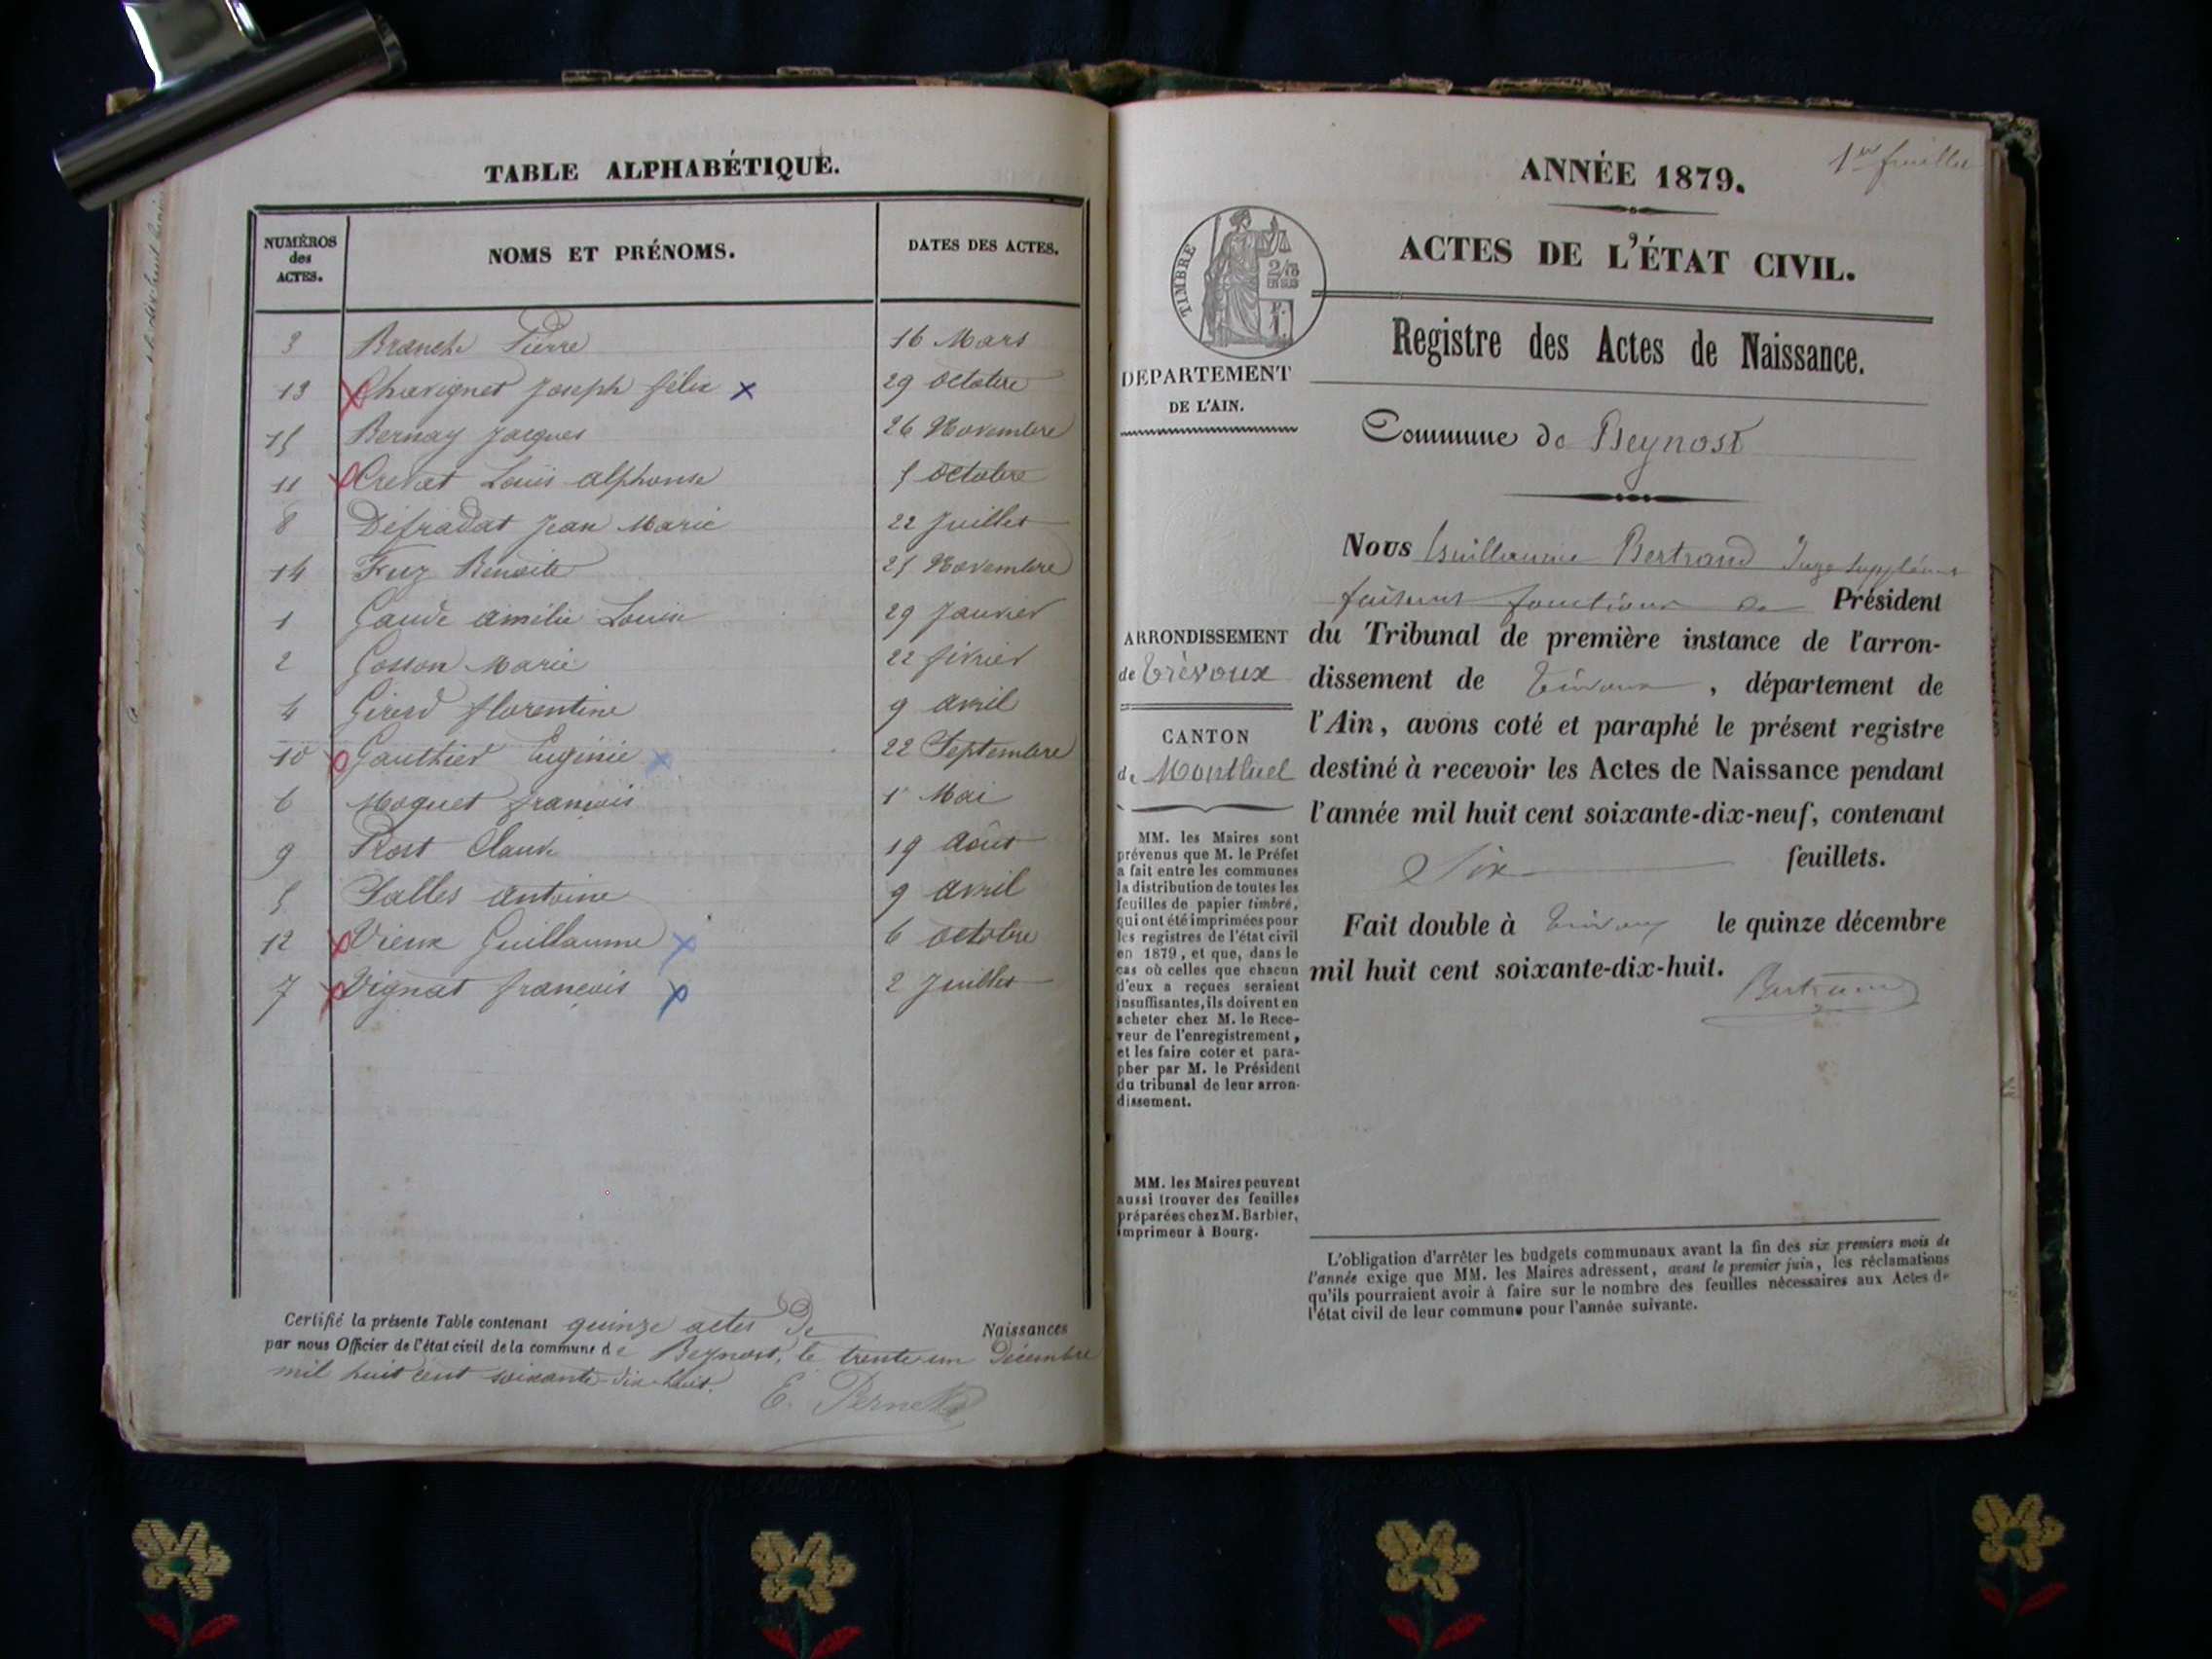 TABLE ALPHABÉTIQUE.
NUMÉROS des ACTES. NOMS ET PRÉNOMS. DATES DES ACTES.
3 Branche Pierre 16 Mars
13 Chavignet Joseph félix 29 octobre
15 Bernay Jacques 26 Novembre
11 Crevat Louis alphonse 5 octobre
8 Défradat Jean Marie 22 Juillet
14 Fuz Benoite 25 Novembre
1 Gaude amélie Louise 29 Janvier
2 Gosson Marie 22 février
4 Girerd florentine 9 avril
10 Gauthier Eugénie 22 Septembre
6 Moquet françois 1 Mai
9 Prost Claude 19 Août
5 Salles antoine 9 avril
12 Vieux Guillaume 6 octobre
7 Vignat françois 2 Juillet
Certifié la présente Table contenant quinze actes De Naissances
par nous Officier de l'état civil de la commune de Beynost, le trente un Décembre
mil huit cent soixante-dix-huit.
E. Pernet
1er feuillet
ANNÉE 1879.
ACTES DE L'ÉTAT CIVIL.
TIMBRE
2/10
EN SUS
Registre des Actes de Naissance.
DEPARTEMENT
DE L'AIN.
Commune de Beynost
Nous Guillaume Bertrand Juge suppléant
faisant fonctions de Président
du Tribunal de première instance de l'arron-
dissement de Trévoux, département de
l'Ain, avons coté et paraphé le présent registre
destiné à recevoir les Actes de Naissance pendant
l'année mil huit cent soixante-dix-neuf, contenant
Six feuillets.
Fait double à Trévoux le quinze décembre
mil huit cent soixante-dix-huit.
Bertrand
ARRONDISSEMENT
de Trévoux
CANTON
de Montluel
MM. les Maires sont
prévenus que M. le Préfet
a fait entre les communes
la distribution de toutes les
feuilles de papier timbré,
qui ont été imprimées pour
les registres de l'état civil
en 1879, et que, dans le
cas où celles que chacun
d'eux a reçues seraient
insuffisantes, ils doivent en
acheter chez M. le Rece-
veur de l'enregistrement,
et les faire coter et para-
pher par M. le Président
du tribunal de leur arron-
dissement.
MM. les Maires peuvent
aussi trouver des feuilles
préparées chez M. Barbier,
imprimeur à Bourg.
L'obligation d'arrêter les budgets communaux avant la fin des six premiers mois de
l'année exige que MM. les Maires adressent, avant le premier juin, les réclamations
qu'ils pourraient avoir à faire sur le nombre des feuilles nécessaires aux Actes de
l'état civil de leur commune pour l'année suivante.